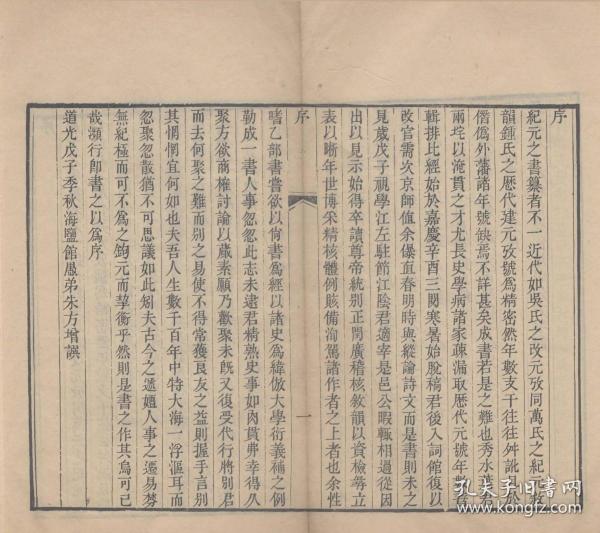 序
紀元之書纂者不一近代如吳氏之改元攷同萬氏之紀元
韻鍾氏之歷代建元攷號為精密然年數支干往往舛訛
僭偽外藩諸年號缺焉不詳甚矣成書若是之難也秀水
兩垞以淹貫之才尤長史學病諸家疏漏取歷代元號年
輯排比經始於嘉慶辛酉三閱寒暑始脫稿君後入詞館復以
改官需次京師值余㬥直春明時與縱論詩文而是書則未之
見歲戊子視學江左駐節江陰君適宰是邑公暇輒相過從因
出以見示始得卒讀尊帝統別正閏廣稽核敘韻以資檢尋立
表以晰年世博采精核體例賅備洵駕諸作者之上者也余性
序
一
嗜乙部書嘗欲以尚書為經以諸史為緯倣大學衍義補之例
勒成一書人事忽忽此志未遂君精熟史事如肉貫弗幸得久
聚方欲商榷討論以蕆素願乃歡聚未旣又復受代行將別君
而去何聚之難而別之易使不得常獲良友之益則握手言別
其惘惘宜何如也夫吾人生數千百年中特大海一浮漚耳而
忽聚忽散猶不可思議如此矧夫古今之遞嬗人事之遷易棼
無紀極而可不為之鉤元而挈衡乎然則是書之作其烏可已
哉瀕行卽書之以為序
道光戊子季秋海鹽館愚弟朱方增譔
孔夫子旧书网